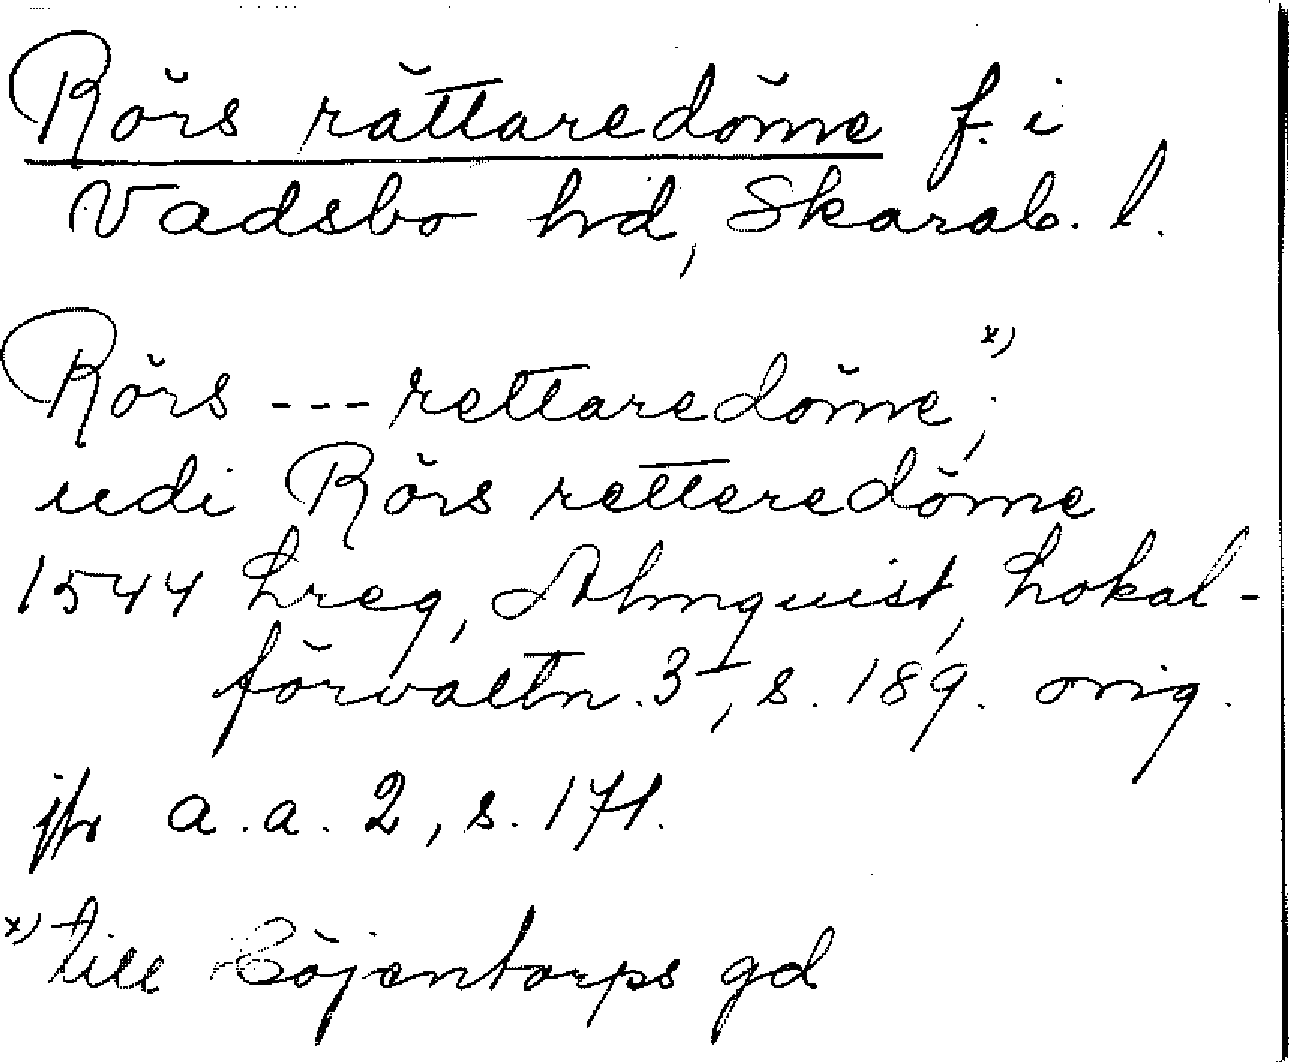 Rörs rättaredöme f. i
Vadsbo hd, Skarab. l.
Rörs --- rettaredöme *);
udi Rörs retteredöme
1544 hreg, Almquist, Lokal-
förvaltn. 3, s. 189. orig.
jfr a.a. 2, s. 171.
*) till Höjentorps gd